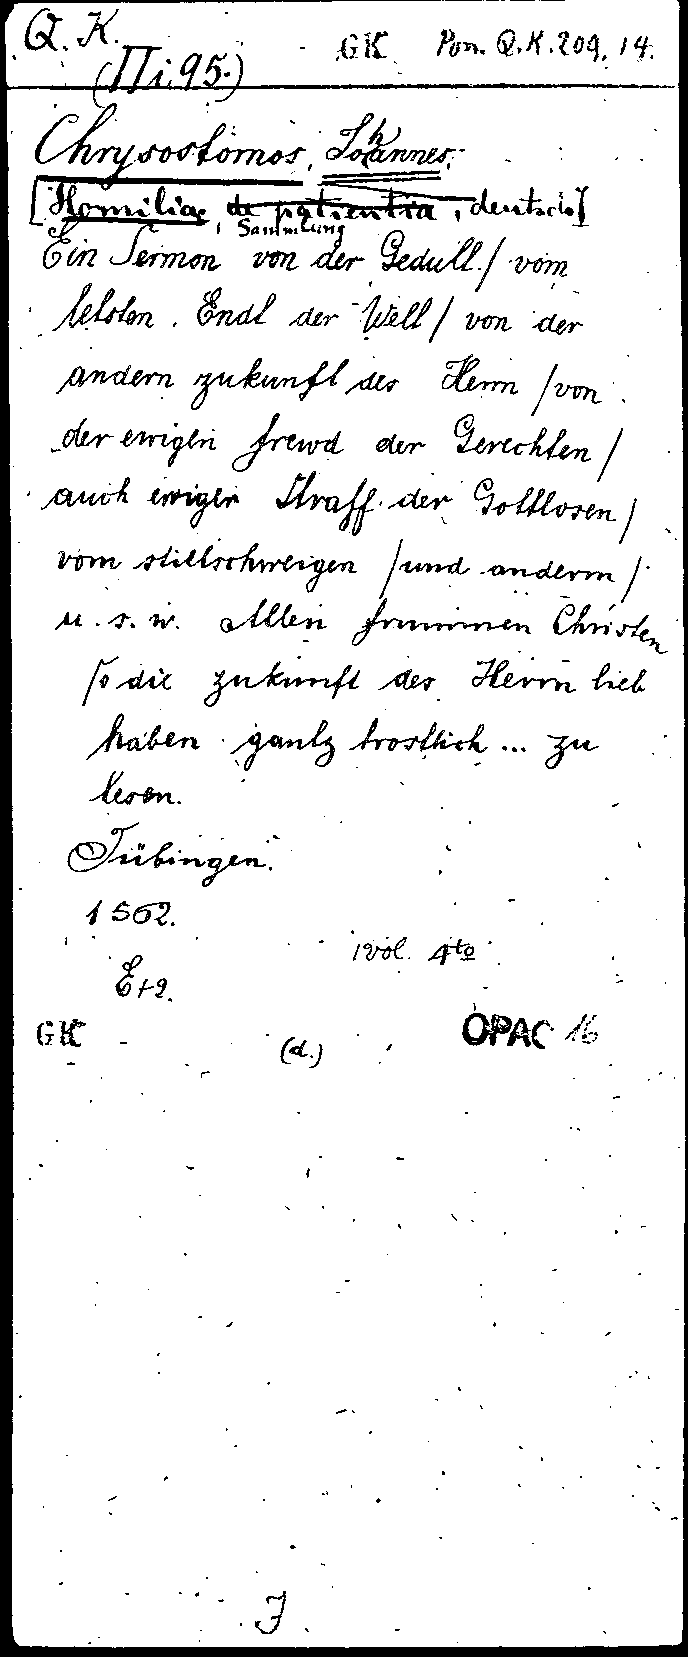 Q. K. GK Pon. Q.K. 209, 14.
(II i 95.)
Chrysostomos, Johannes.
[Homiliae, de patientia, deutsch]
Sammlung
Ein Sermon von der Gedult / vom
letsten Endt der Welt / von der
andern zukunft des Herrn / von
der ewigen frewd der Gerechten /
auch ewiger Straff der Gottlosen /
vom stillschweigen / und anderm /
u. s. w. Allen frummen Christen
so die zukunft des Herrn lieb
haben gantz trostlich ... zu
lesen.
Tübingen.
1562.
1 vol. 4to
GK (d.) OPAC 16
J